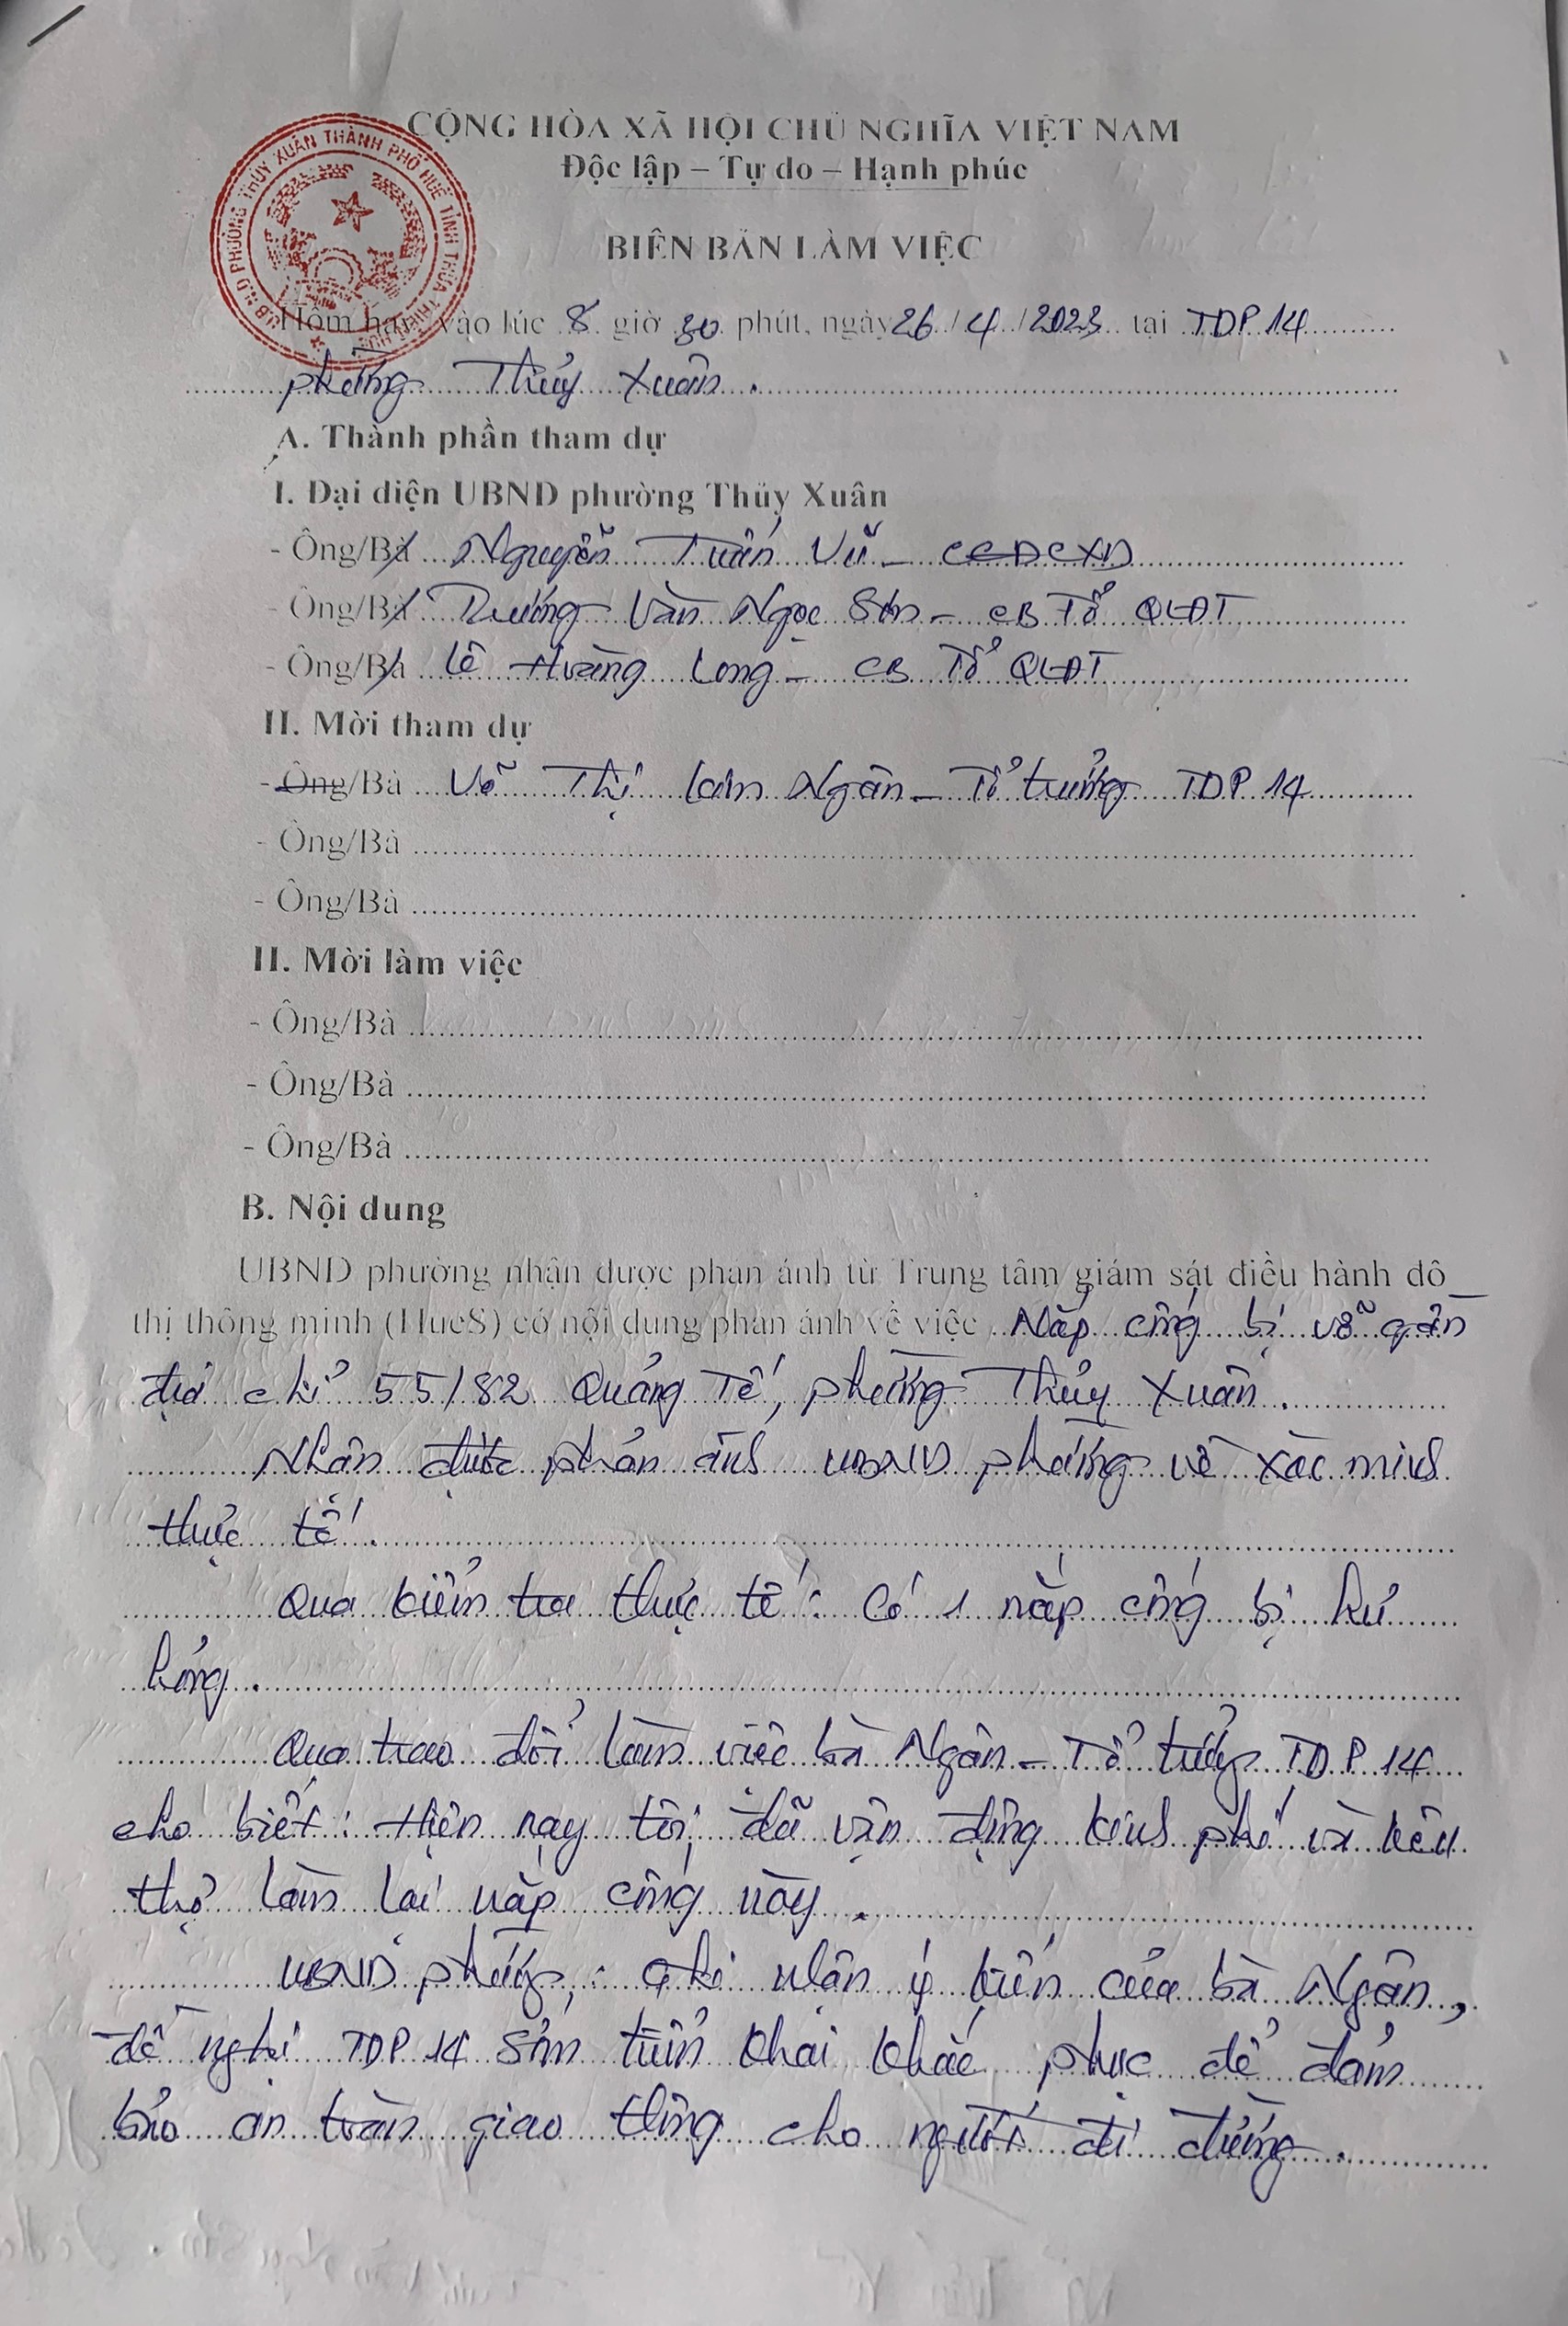 CỘNG HÒA XÃ HỘI CHỦ NGHĨA VIỆT NAM
Độc lập – Tự do – Hạnh phúc
UBND PHƯỜNG THỦY XUÂN THÀNH PHỐ HUẾ TỈNH THỪA THIÊN HUẾ
BIÊN BẢN LÀM VIỆC
Hôm nay, vào lúc 8 giờ 30 phút, ngày 26/4/2023 tại TDP 14
phường Thủy Xuân.
A. Thành phần tham dự
I. Đại diện UBND phường Thủy Xuân
- Ông/Bà Nguyễn Tuấn Vũ - CCĐCXD
- Ông/Bà Trương Văn Ngọc Sơn - CB Tổ QLĐT
- Ông/Bà Lê Hoàng Long - CB Tổ QLĐT
II. Mời tham dự
- Ông/Bà Võ Thị Lam Ngân - Tổ trưởng TDP 14
- Ông/Bà
- Ông/Bà
II. Mời làm việc
- Ông/Bà
- Ông/Bà
- Ông/Bà
B. Nội dung
UBND phường nhận được phản ánh từ Trung tâm giám sát điều hành đô
thị thông minh (HueS) có nội dung phản ánh về việc Nắp cống bị vỡ gần
địa chỉ 55/82 Quảng Tế, phường Thủy Xuân.
Nhận được phản ánh UBND phường về xác minh
thực tế.
Qua kiểm tra thực tế: Có 1 nắp cống bị hư
hỏng.
Qua trao đổi làm việc bà Ngân - Tổ trưởng TDP 14
cho biết: Hiện nay tôi đã vận động kinh phí và kêu
thợ làm lại nắp cống này.
UBND phường: ghi nhận ý kiến của bà Ngân,
đề nghị TDP 14 sớm triển khai khắc phục để đảm
bảo an toàn giao thông cho người đi đường.